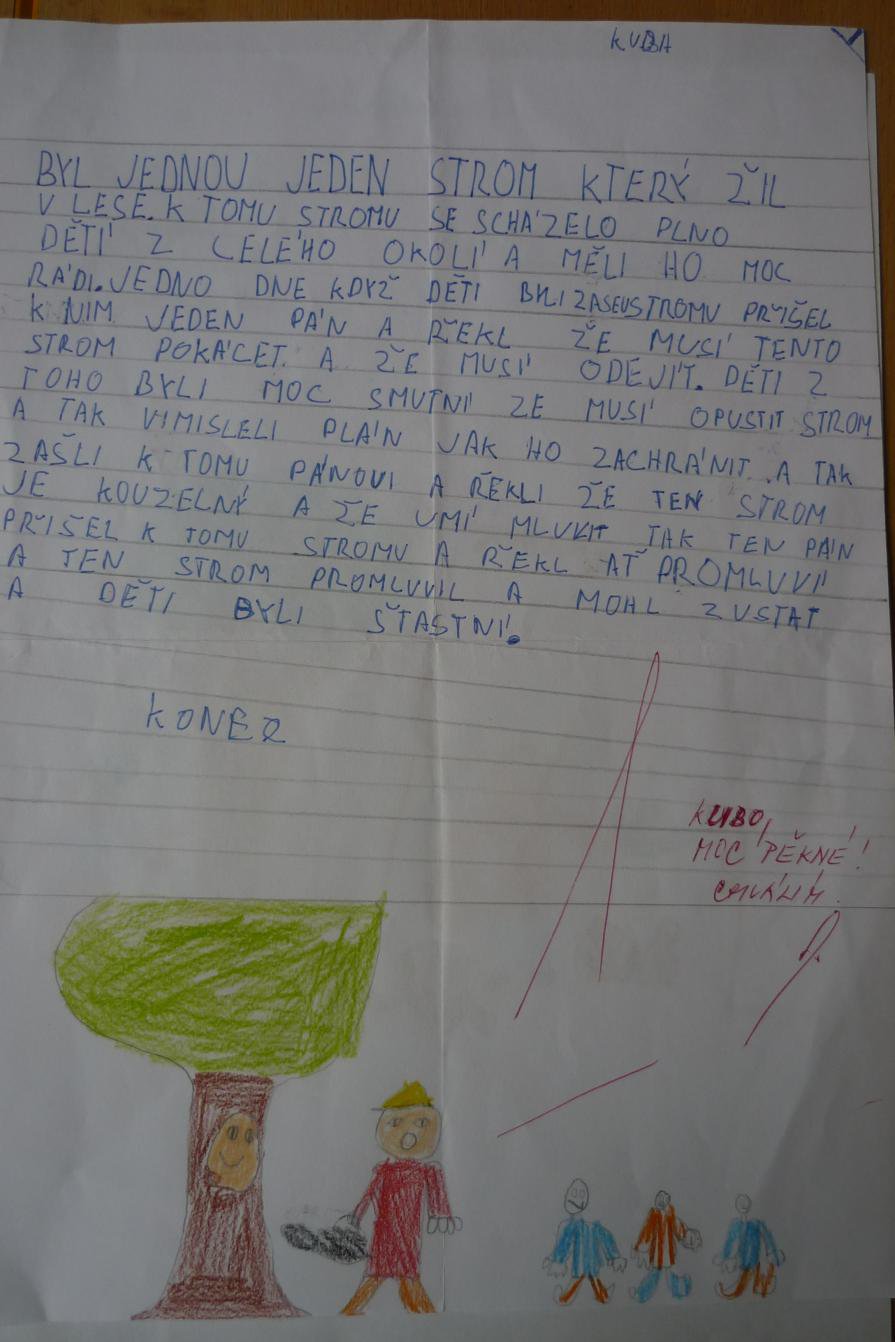 KUBA
BYL JEDNOU JEDEN STROM KTERÝ ŽIL
V LESE. K TOMU STROMU SE SCHÁZELO PLNO
DĚTÍ Z CELÉHO OKOLÍ A MĚLI HO MOC
RÁDI. JEDNO DNE KDYŽ DĚTI BYLI ZASEUSTROMU PŘIŠEL
K NIM JEDEN PÁN A ŘEKL ŽE MUSÍ TENTO
STROM POKÁCET. A ŽE MUSÍ ODEJÍT. DĚTI Z
TOHO BYLI MOC SMUTNÍ ZE MUSÍ OPUSTIT STROM
A TAK VIMISLELI PLÁN JAK HO ZACHRÁNIT. A TAK
ZAŠLI K TOMU PÁNOVI A ŘEKLI ŽE TEN STROM
JE KOUZELNÝ A ŽE UMÍ MLUVIT TAK TEN PÁN
PŘIŠEL K TOMU STROMU A ŘEKL AŤ PROMLUVÍ
A TEN STROM PROMLUVIL A MOHL ZUSTAT
A DĚTI BYLI ŠTASTNÍ.
KONEC
1
KUBO,
MOC PĚKNÉ!
CHVÁLÍM.